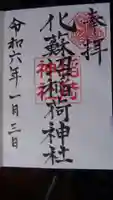 奉拝
化蘇沼稲荷神社
令和六年一月三日